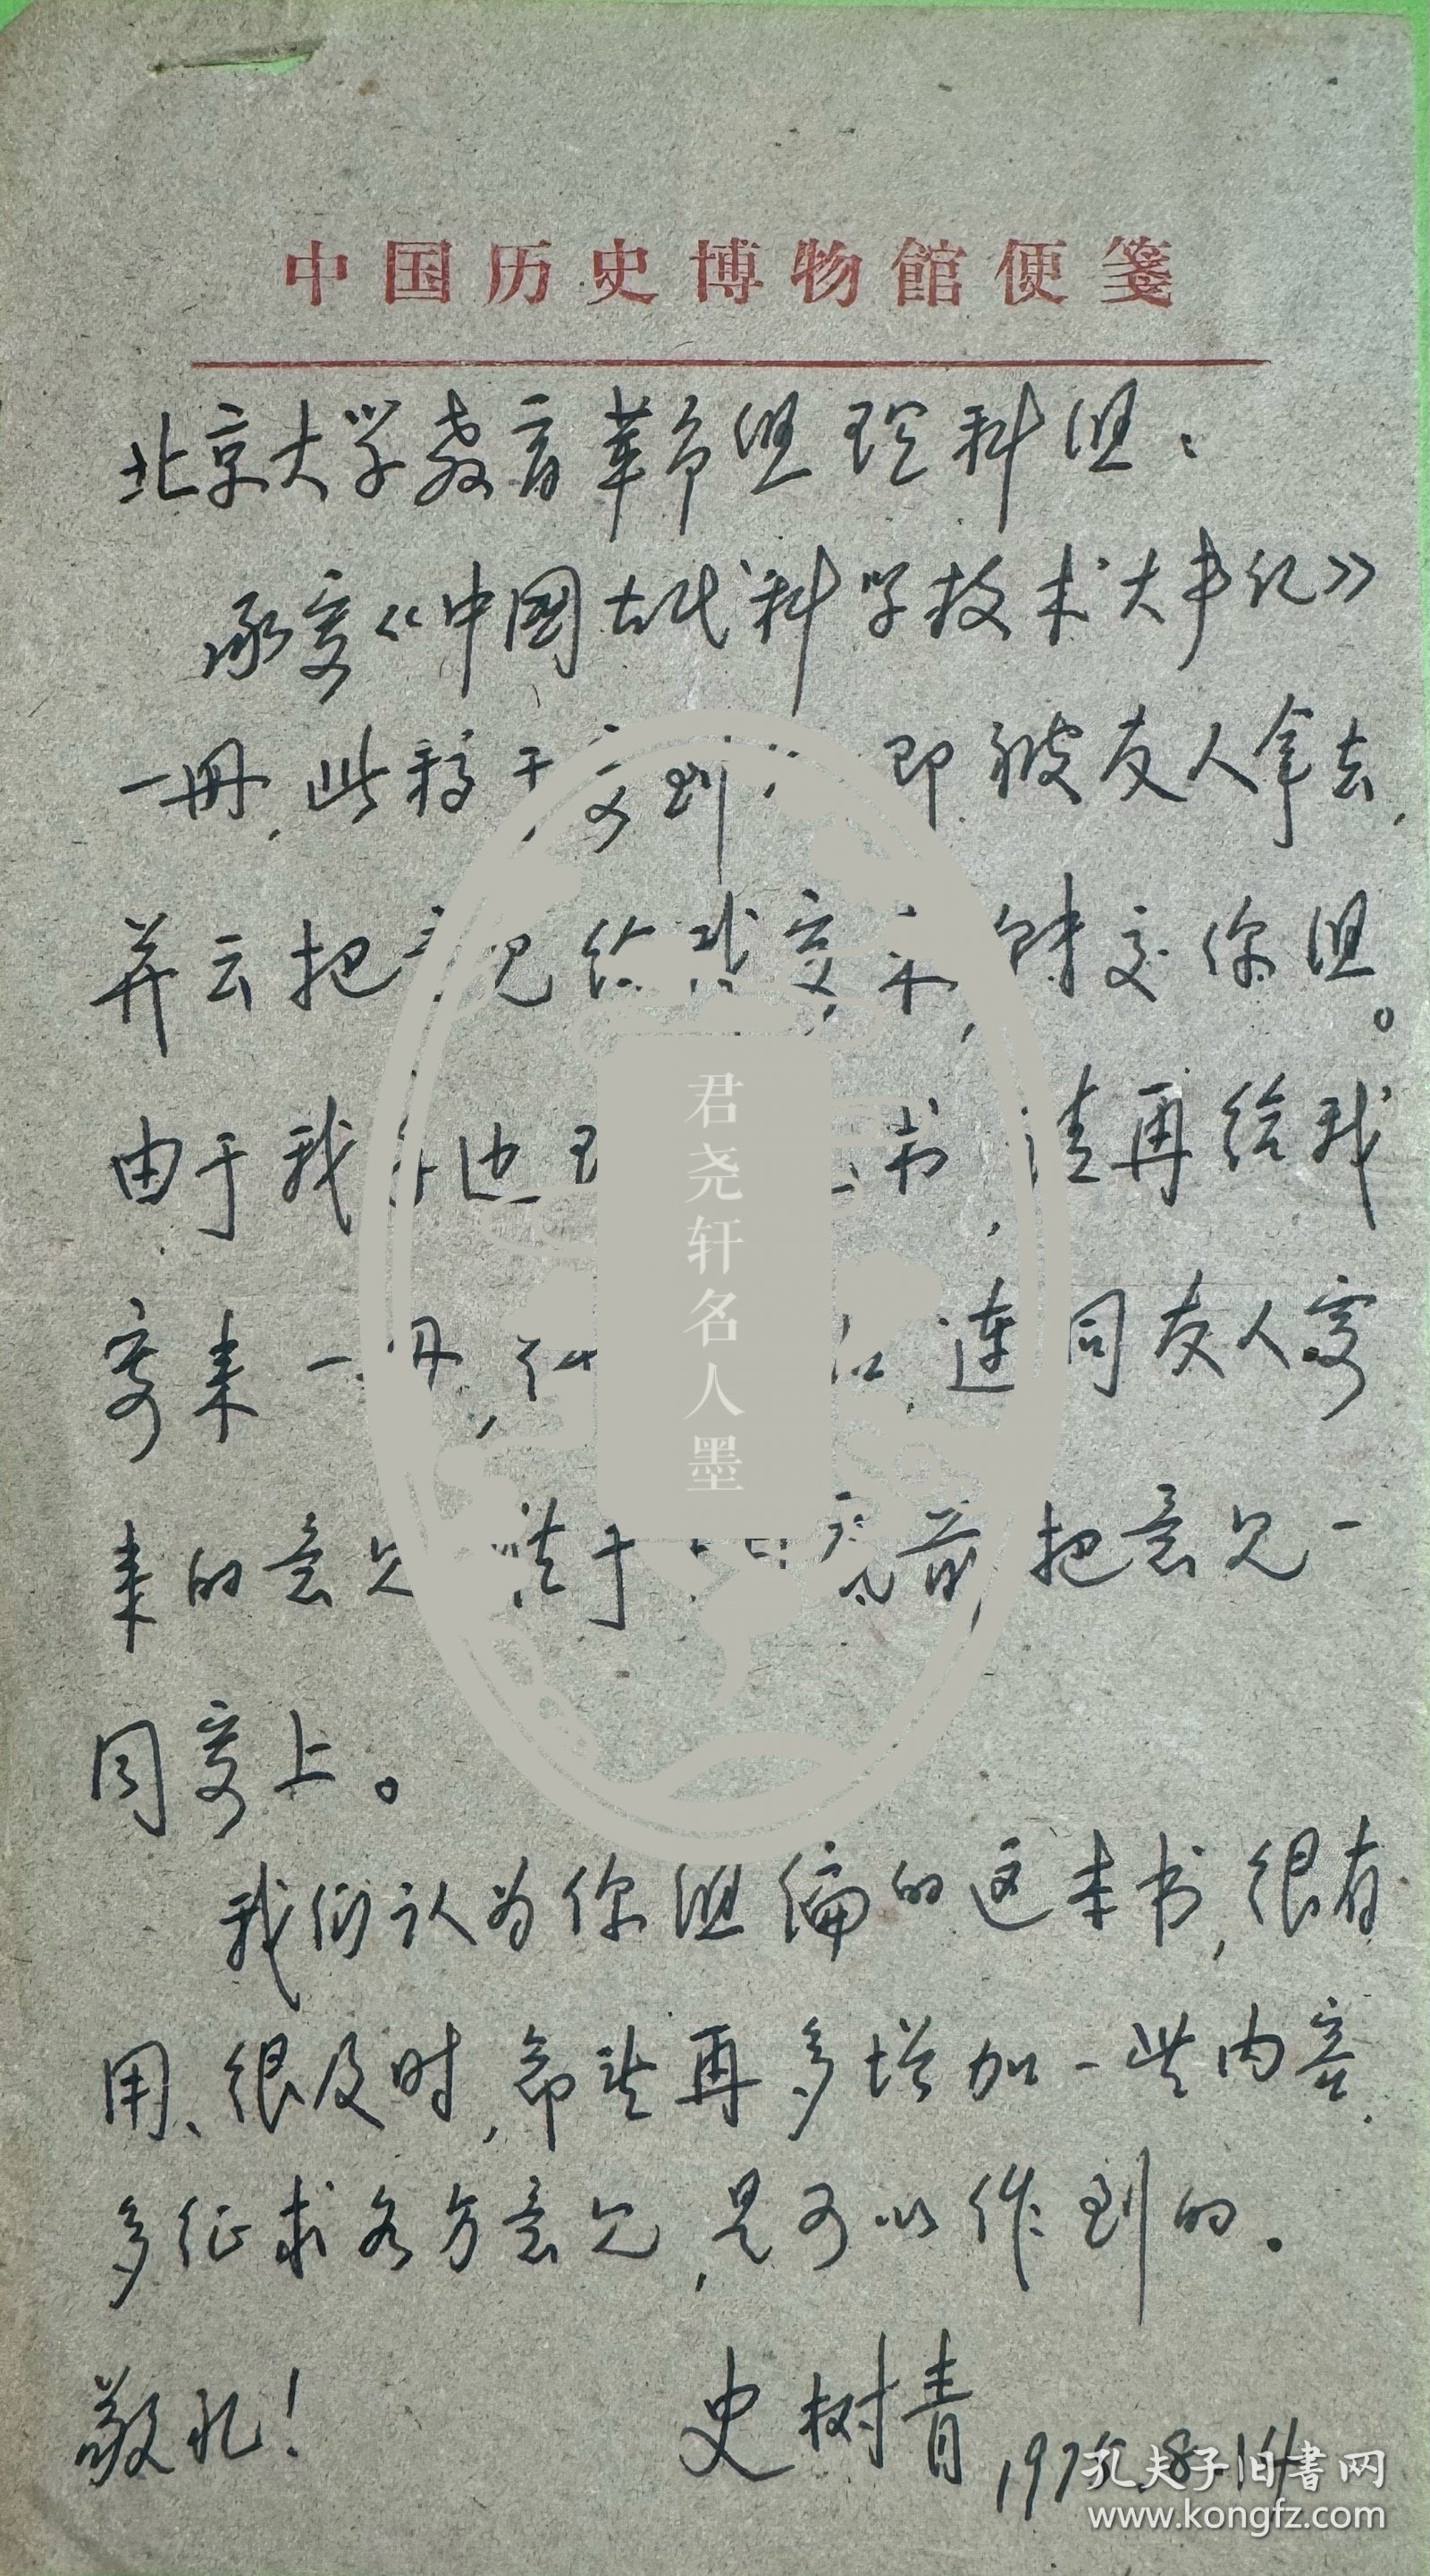 中国历史博物館便箋
北京大学教育革命组理科组：
承寄《中國古代科学技术大事记》
一册，此稿于寄到 即被友人拿去，
并云把意见给我寄来，转交你组。
由于我手边 书，请再给我
寄来一册， 连同友人寄
来的意见 于 前把意见一
同寄上。
我们认为你组编的这本书，很有
用、很及时，希望再多增加一些内容，
多征求各方意见，是可以作到的。
敬礼！
史树青 197 .8.14
君尧轩名人墨
孔夫子旧书网
www.kongfz.com